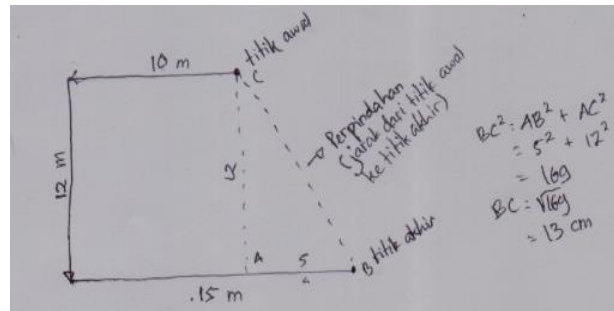 titik awal
10 m
C
12 m
12
→ Perpindahan
(jarak dari titik awal
ke titik akhir)
A
5
B titik akhir
.15 m
BC² = AB² + AC²
= 5² + 12²
= 169
BC = √169
= 13 cm